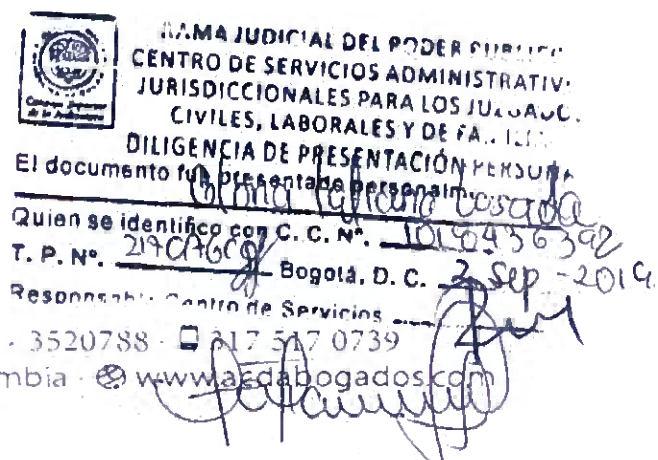 RAMA JUDICIAL DEL PODER PUBLICO
CENTRO DE SERVICIOS ADMINISTRATIV
JURISDICCIONALES PARA LOS JUZGADO
CIVILES, LABORALES Y DE FA
DILIGENCIA DE PRESENTACIÓN PERSONA
El documento fue presentado personalm
Gloria Tatiana Losada
Quien se identifico con C. C. Nº. 1018436392
T. P. Nº. Bogotá, D. C. 2 Sep - 2019.
Responsable Centro de Servicios
3520788 · 317 517 0739
mbia · www.acdabogados.com